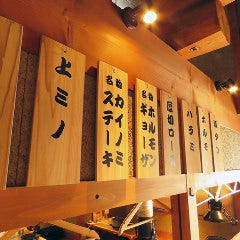 上ミノ
名物
カイノミ
ステーキ
名物
ホルモン
ギョーザ
厚切ロース
ハラミ
ホルモ